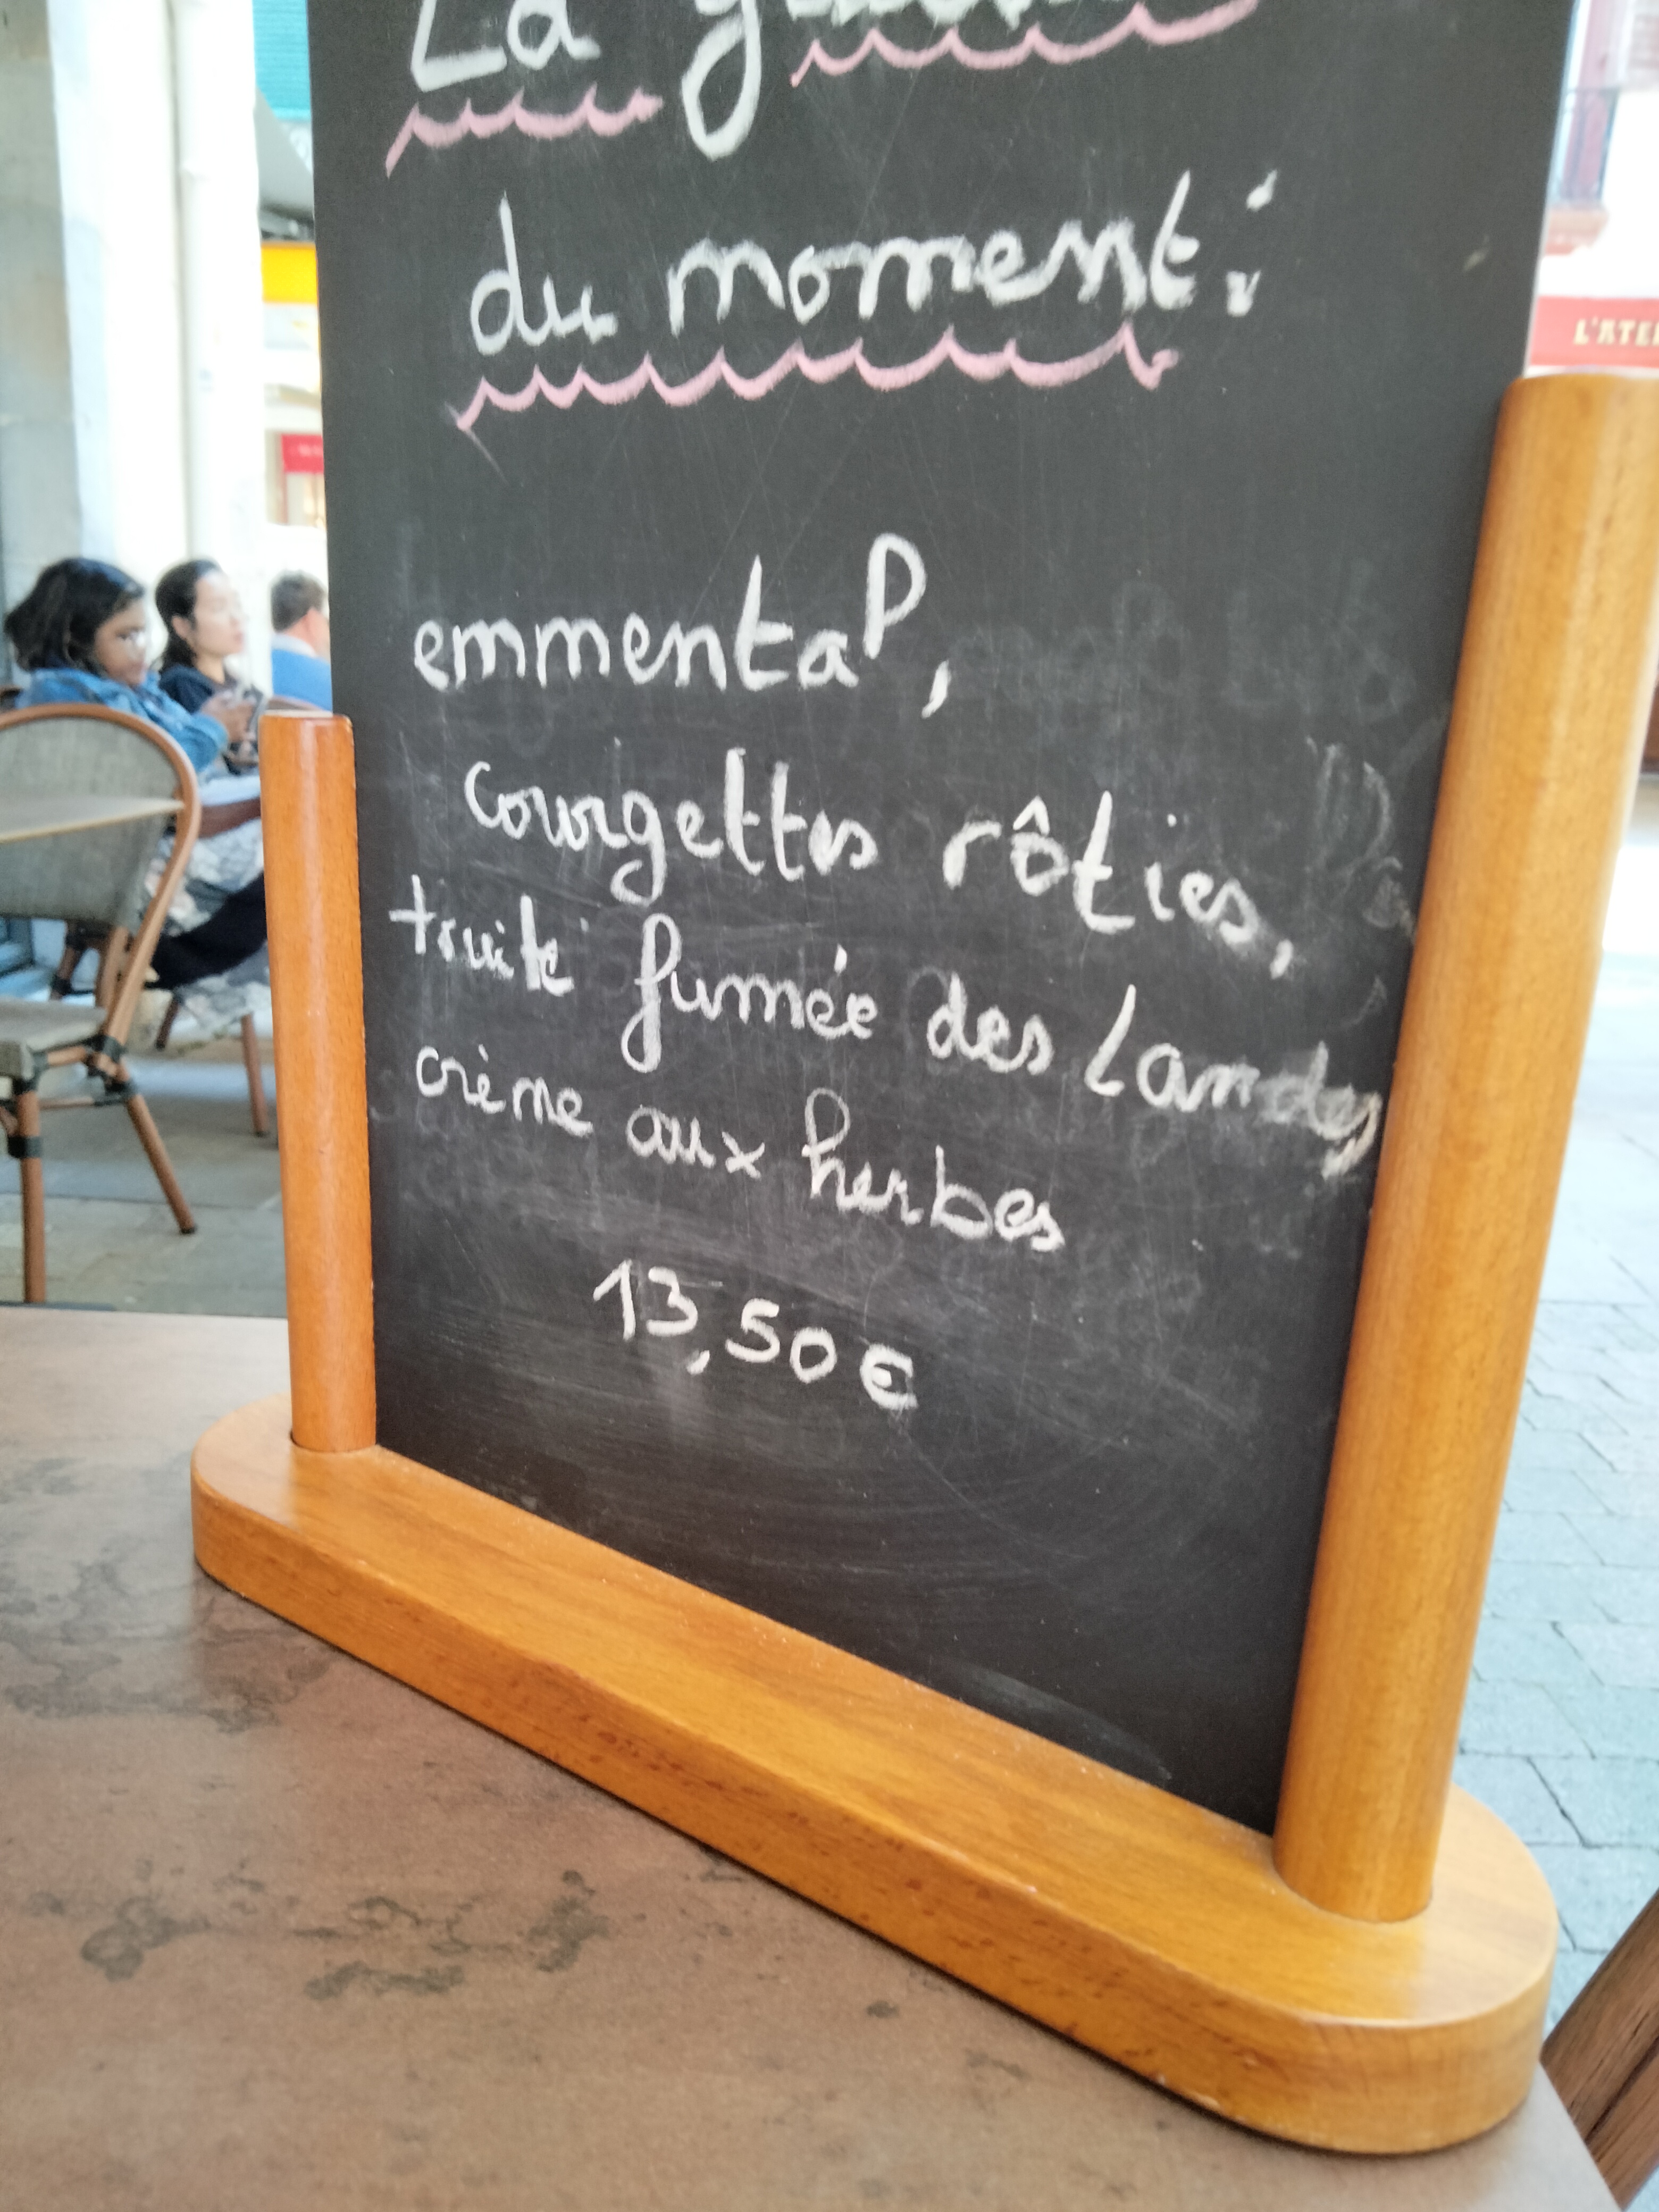 La
du moment :
emmental,
courgettes rôties,
truite fumée des Landes
crème aux herbes
13,50€